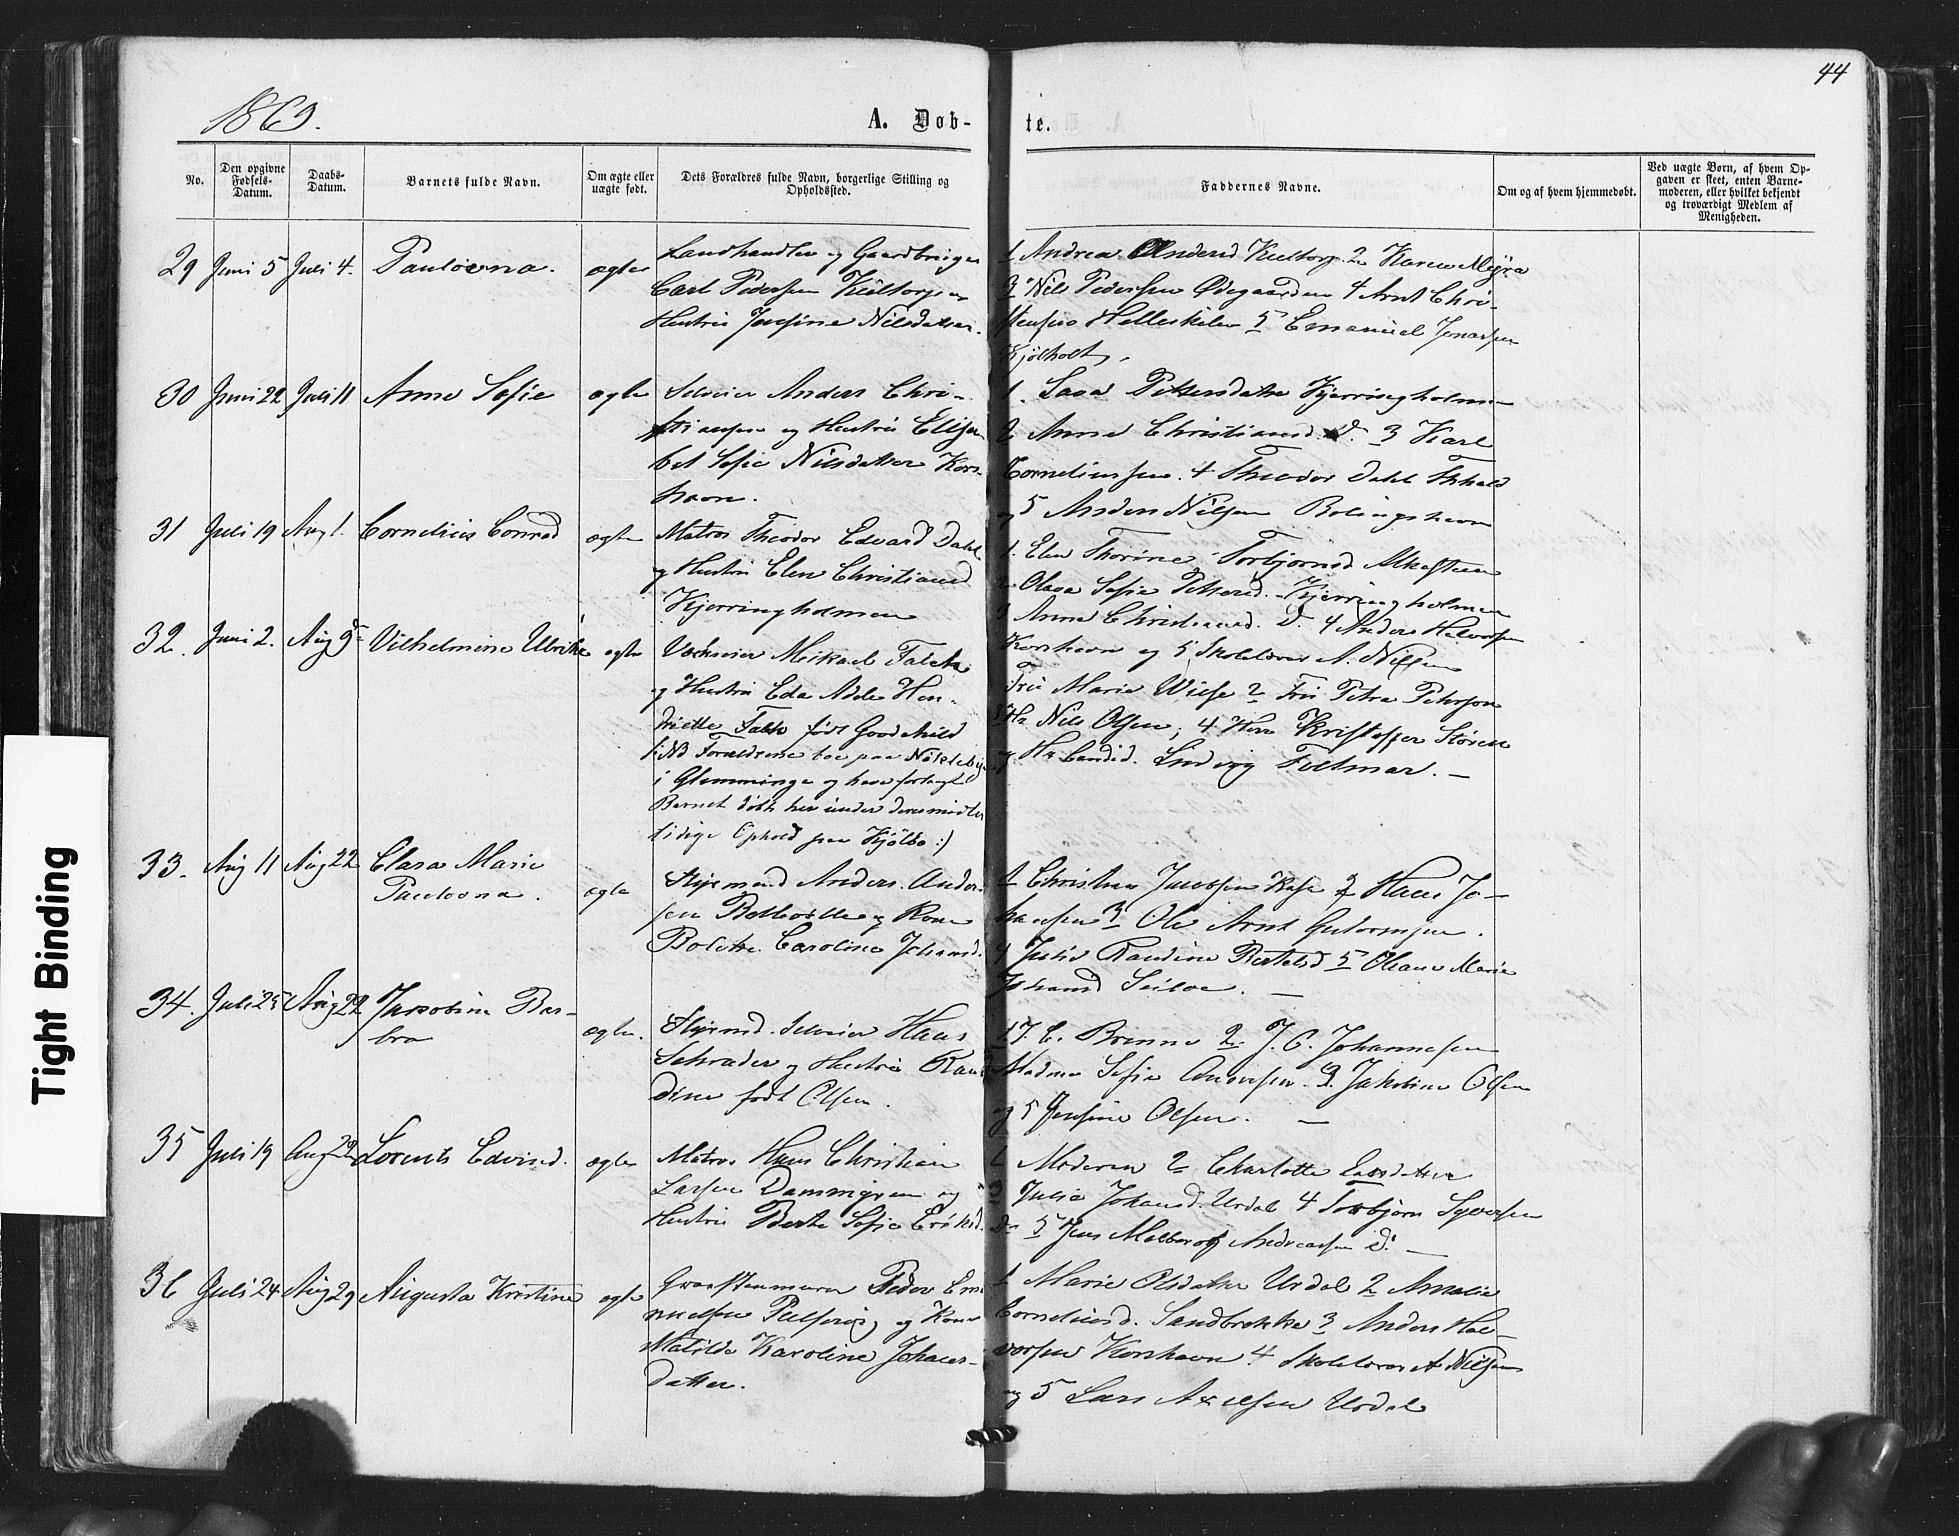 44
1869.
A. Døb-
te.
No.
Den opgivne Fødsels-Datum.
Daabs-Datum.
Barnets fulde Navn.
Om ægte eller uægte født.
Dets Forældres fulde Navn, borgerlige Stilling og Opholdssted.
Faddernes Navne.
Om og af hvem hjemmedøbt.
Ved uægte Børn, af hvem Op-
gaven er skeet, enten Barne-
moderen, eller hvilket bekjendt
og troværdigt Medlem af
Menigheden.
29 Juni 5 Juli 4. Paulovna. ægte
Landhandler og Gaardbruger
Carl Pedersen
Hustru Josefine Nilsdatter.
1 Andrea Andersd 2 Karen
3 Nils Pedersen Ødegaarden 4 Arnt Chri-
stensen 5 Emanuel Jonassen
Kjølholt,
30 Juni 22 Juli 11 Anne Sofie ægte
Selveier Anders Chri-
stiansen og Hustru Elisa
bet Sofie Nilsdatter Kors-
havn.
1. Pettersdatter Kjerringholmen
2 Anne Christiansd. D. 3 Karl
Corneliussen. 4 Theodor Dahl
og 5 Anders Nilsen
31 Juli 19 Aug 1. Cornelius Conrad ægte
Matros Theodor Edvard Dahl
og Hustru Elen Christiansd
Kjerringholmen
1. Elen Thorine Torbjørnsd
2 Olava Sofie Pettersd. Kjerringholmen
3 Anne Christiansd. D. 4 Anders Halvorsen
Korshavn og 5 Skolelærer A. Nilsen
32. Juni 2. Aug Vilhelmine Ulrikke ægte
Mikael Falck
og Hustru Eda Adele Hen-
driette Falck født Goodchild
(: NB Forældrene boe paa
i Glemminge og have forlangt
Barnet døbt her under deres midler
tidige Ophold paa Kjølbo :)
Fru Marie Wiese 2 Fru Petra Peterson
3 Hr. Nils Olsen; 4. Herr Kristoffer Støren
og Hr. Candid. Ludvig Foltmar. —
33. Aug 11 Aug 22 Clara Marie
Paulovna. ægte
Styrmand Anders Ander-
sen og Kone
Bolette Caroline Johansd.
1 Christian Jacobsen 2 Hans Jo-
hansen 3 Ole Arnt Guttormsen.
4 Randine Bertelsd 5 Oleane Marie
Johansd —
34. Juli 25 Aug 22 Jakobine Bar-
bra ægte.
Styrmd. Selveier Hans
Schrader og Hustru Ran
dine født Olsen.
1 J. C. Brenne 2. J. C. Johannesen
Madme Sofie 3. Jakobine Olsen
og 5 Josefine Olsen. —
35 Juli 19 Aug 29 Lorents Edvind. ægte
Matros Hans Christian
Larsen Dammyren og
Hustru Berte Sofie Eriksd.
1 Moderen 2 Charlotte Larsdatter
3 Julie Johansd. Urdal 4 Torbjørn Syversen
Do 5 Jens Melberg Andreassen D. —
36 Juli 24 Aug 29 Augusta Kristine ægte
Graastensmurer Peder Em
nuelsen og Kone
Matilde Karoline Johans-
datter.
1 Marie Olsdatter Urdal 2 Amalie
Corneliusd. Sandbrekke 3 Anders Hal-
vorsen Korshavn 4 Skolelærer A Nilsen
og 5 Lars Axelsen Urdal
Tight Binding